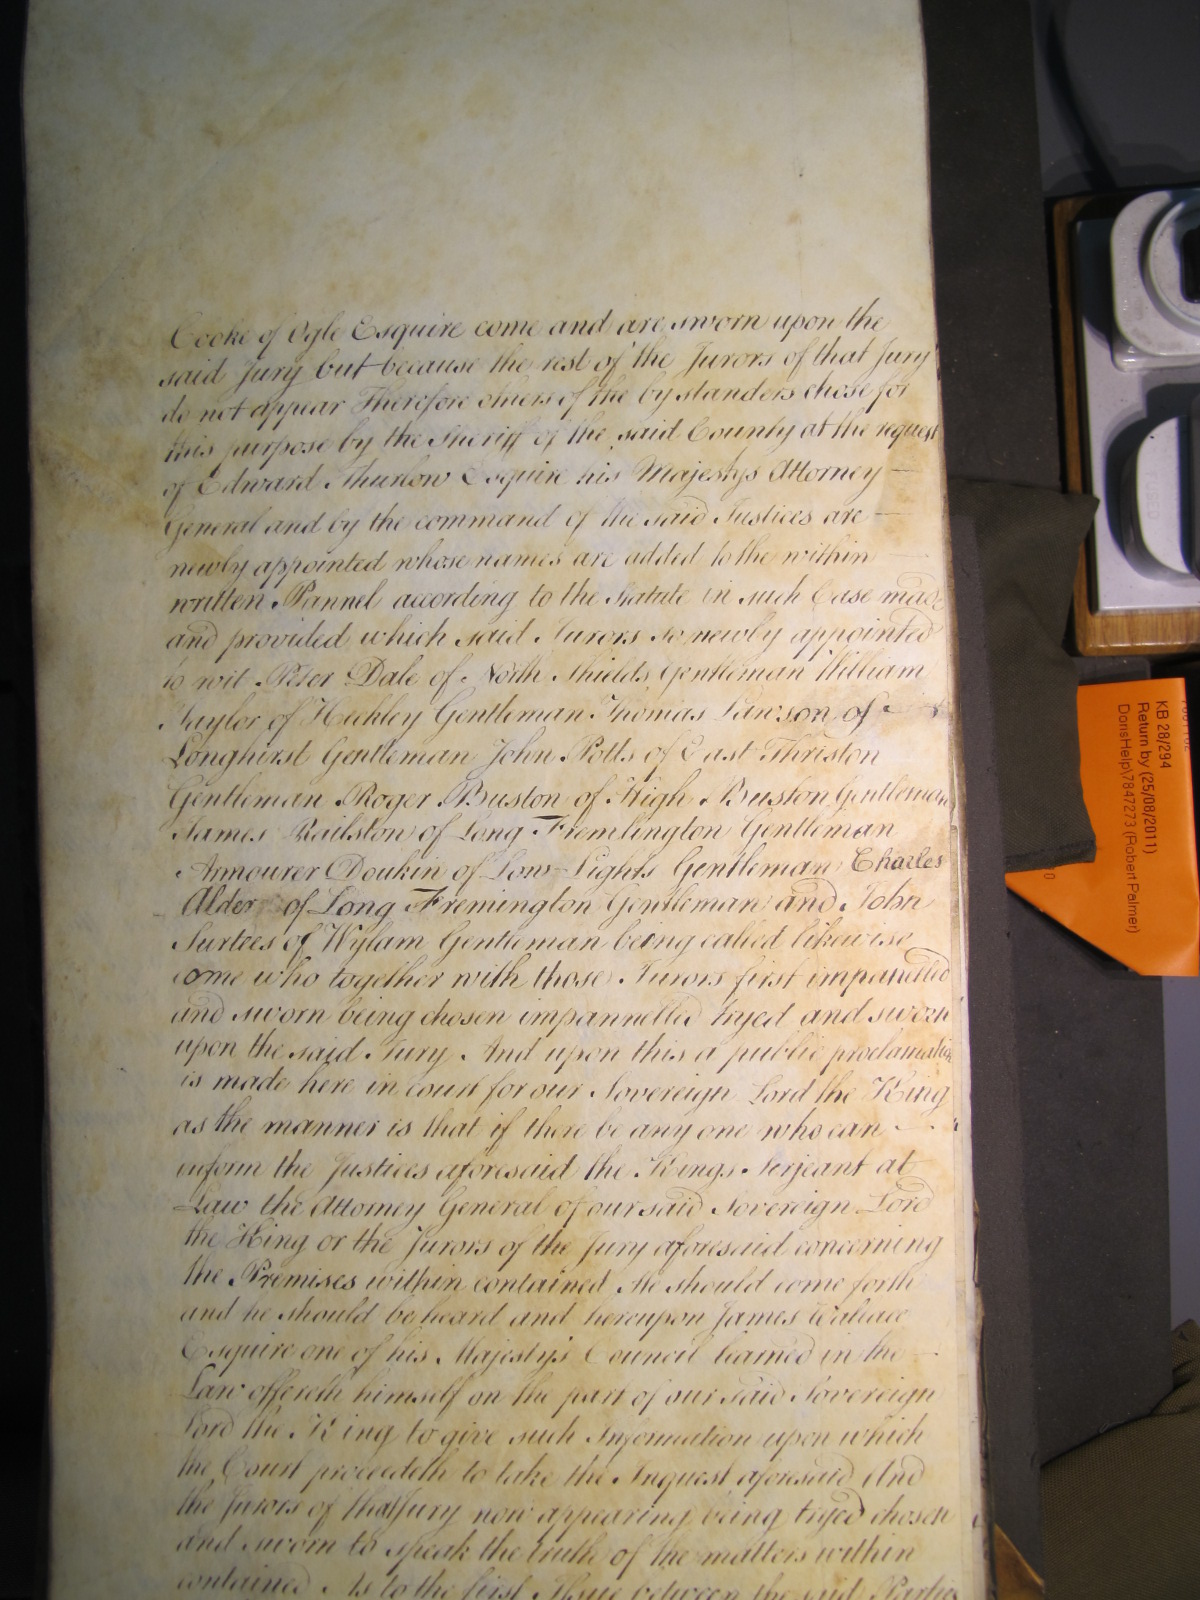 Cooke of Ogle Esquire come and are sworn upon the
said Jury but because the rest of the Jurors of that Jury
do not appear Therefore others of the by standers chose for
this purpose by the Sheriff of the said County at the request
of Edward Thurlow Esquire his Majestys Attorney
General and by the command of the said Justices are
newly appointed whose names are added to the within
written Pannel according to the Statute in such Case made
and provided which said Jurors so newly appointed
to wit Peter Dale of North Shields Gentleman William
Taylor of Heckley Gentleman Thomas Lawson of
Longhirst Gentleman John Potts of East Thriston
Gentleman Roger Buston of High Buston Gentleman
James Railston of Long Fremlington Gentleman
Armourer Donkin of Low Lights Gentleman Charles
Alder of Long Fremington Gentleman and John
Surtees of Wylam Gentleman being called likewise
come who together with those Jurors first impanelled
and sworn being chosen impannelled tryed and sworn
upon the said Jury And upon this a public proclamation
is made here in court for our Sovereign Lord the King
as the manner is that if there be any one who can
inform the Justices aforesaid the Kings Serjeant at
Law the Attorney General of our said Sovereign Lord
the King or the Jurors of the Jury aforesaid concerning
the Premises within contained He should come forth
and he should be heard and hereupon James Wallace
Esquire one of his Majestys Council learned in the
Law offereth himself on the part of our said Sovereign
Lord the King to give such Information upon which
the Court proceedeth to take the Inquest aforesaid And
the Jurors of that Jury now appearing being tryed chosen
and sworn to speak the truth of the matters within
contained As to the first Issue between the said Parties
KB 28/294
Return by (25/08/2011)
DorisHelp\7847273 (Robert Palmer)